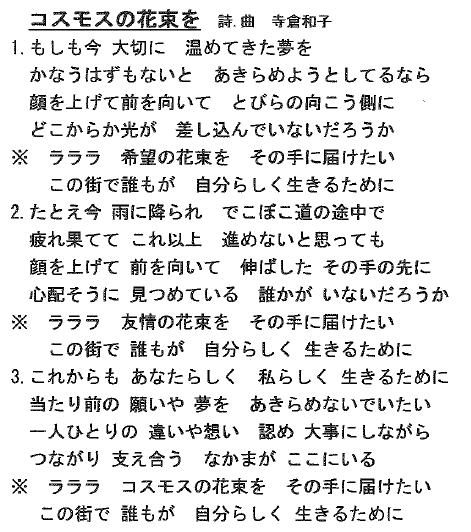 コスモスの花束を　詩.曲　寺倉和子
1. もしも今 大切に　温めてきた夢を
かなうはずもないと　あきらめようとしてるなら
顔を上げて前を向いて　とびらの向こう側に
どこからか光が　差し込んでいないだろうか
※　ラララ　希望の花束を　その手に届けたい
この街で誰もが　自分らしく生きるために
2. たとえ今 雨に降られ　でこぼこ道の途中で
疲れ果てて これ以上　進めないと思っても
顔を上げて 前を向いて　伸ばした その手の先に
心配そうに 見つめている　誰かが いないだろうか
※　ラララ　友情の花束を　その手に届けたい
この街で 誰もが　自分らしく 生きるために
3. これからも あなたらしく　私らしく 生きるために
当たり前の 願いや 夢を　あきらめないでいたい
一人ひとりの 違いや想い　認め 大事にしながら
つながり 支え合う　なかまが ここにいる
※　ラララ　コスモスの花束を　その手に届けたい
この街で 誰もが　自分らしく 生きるために